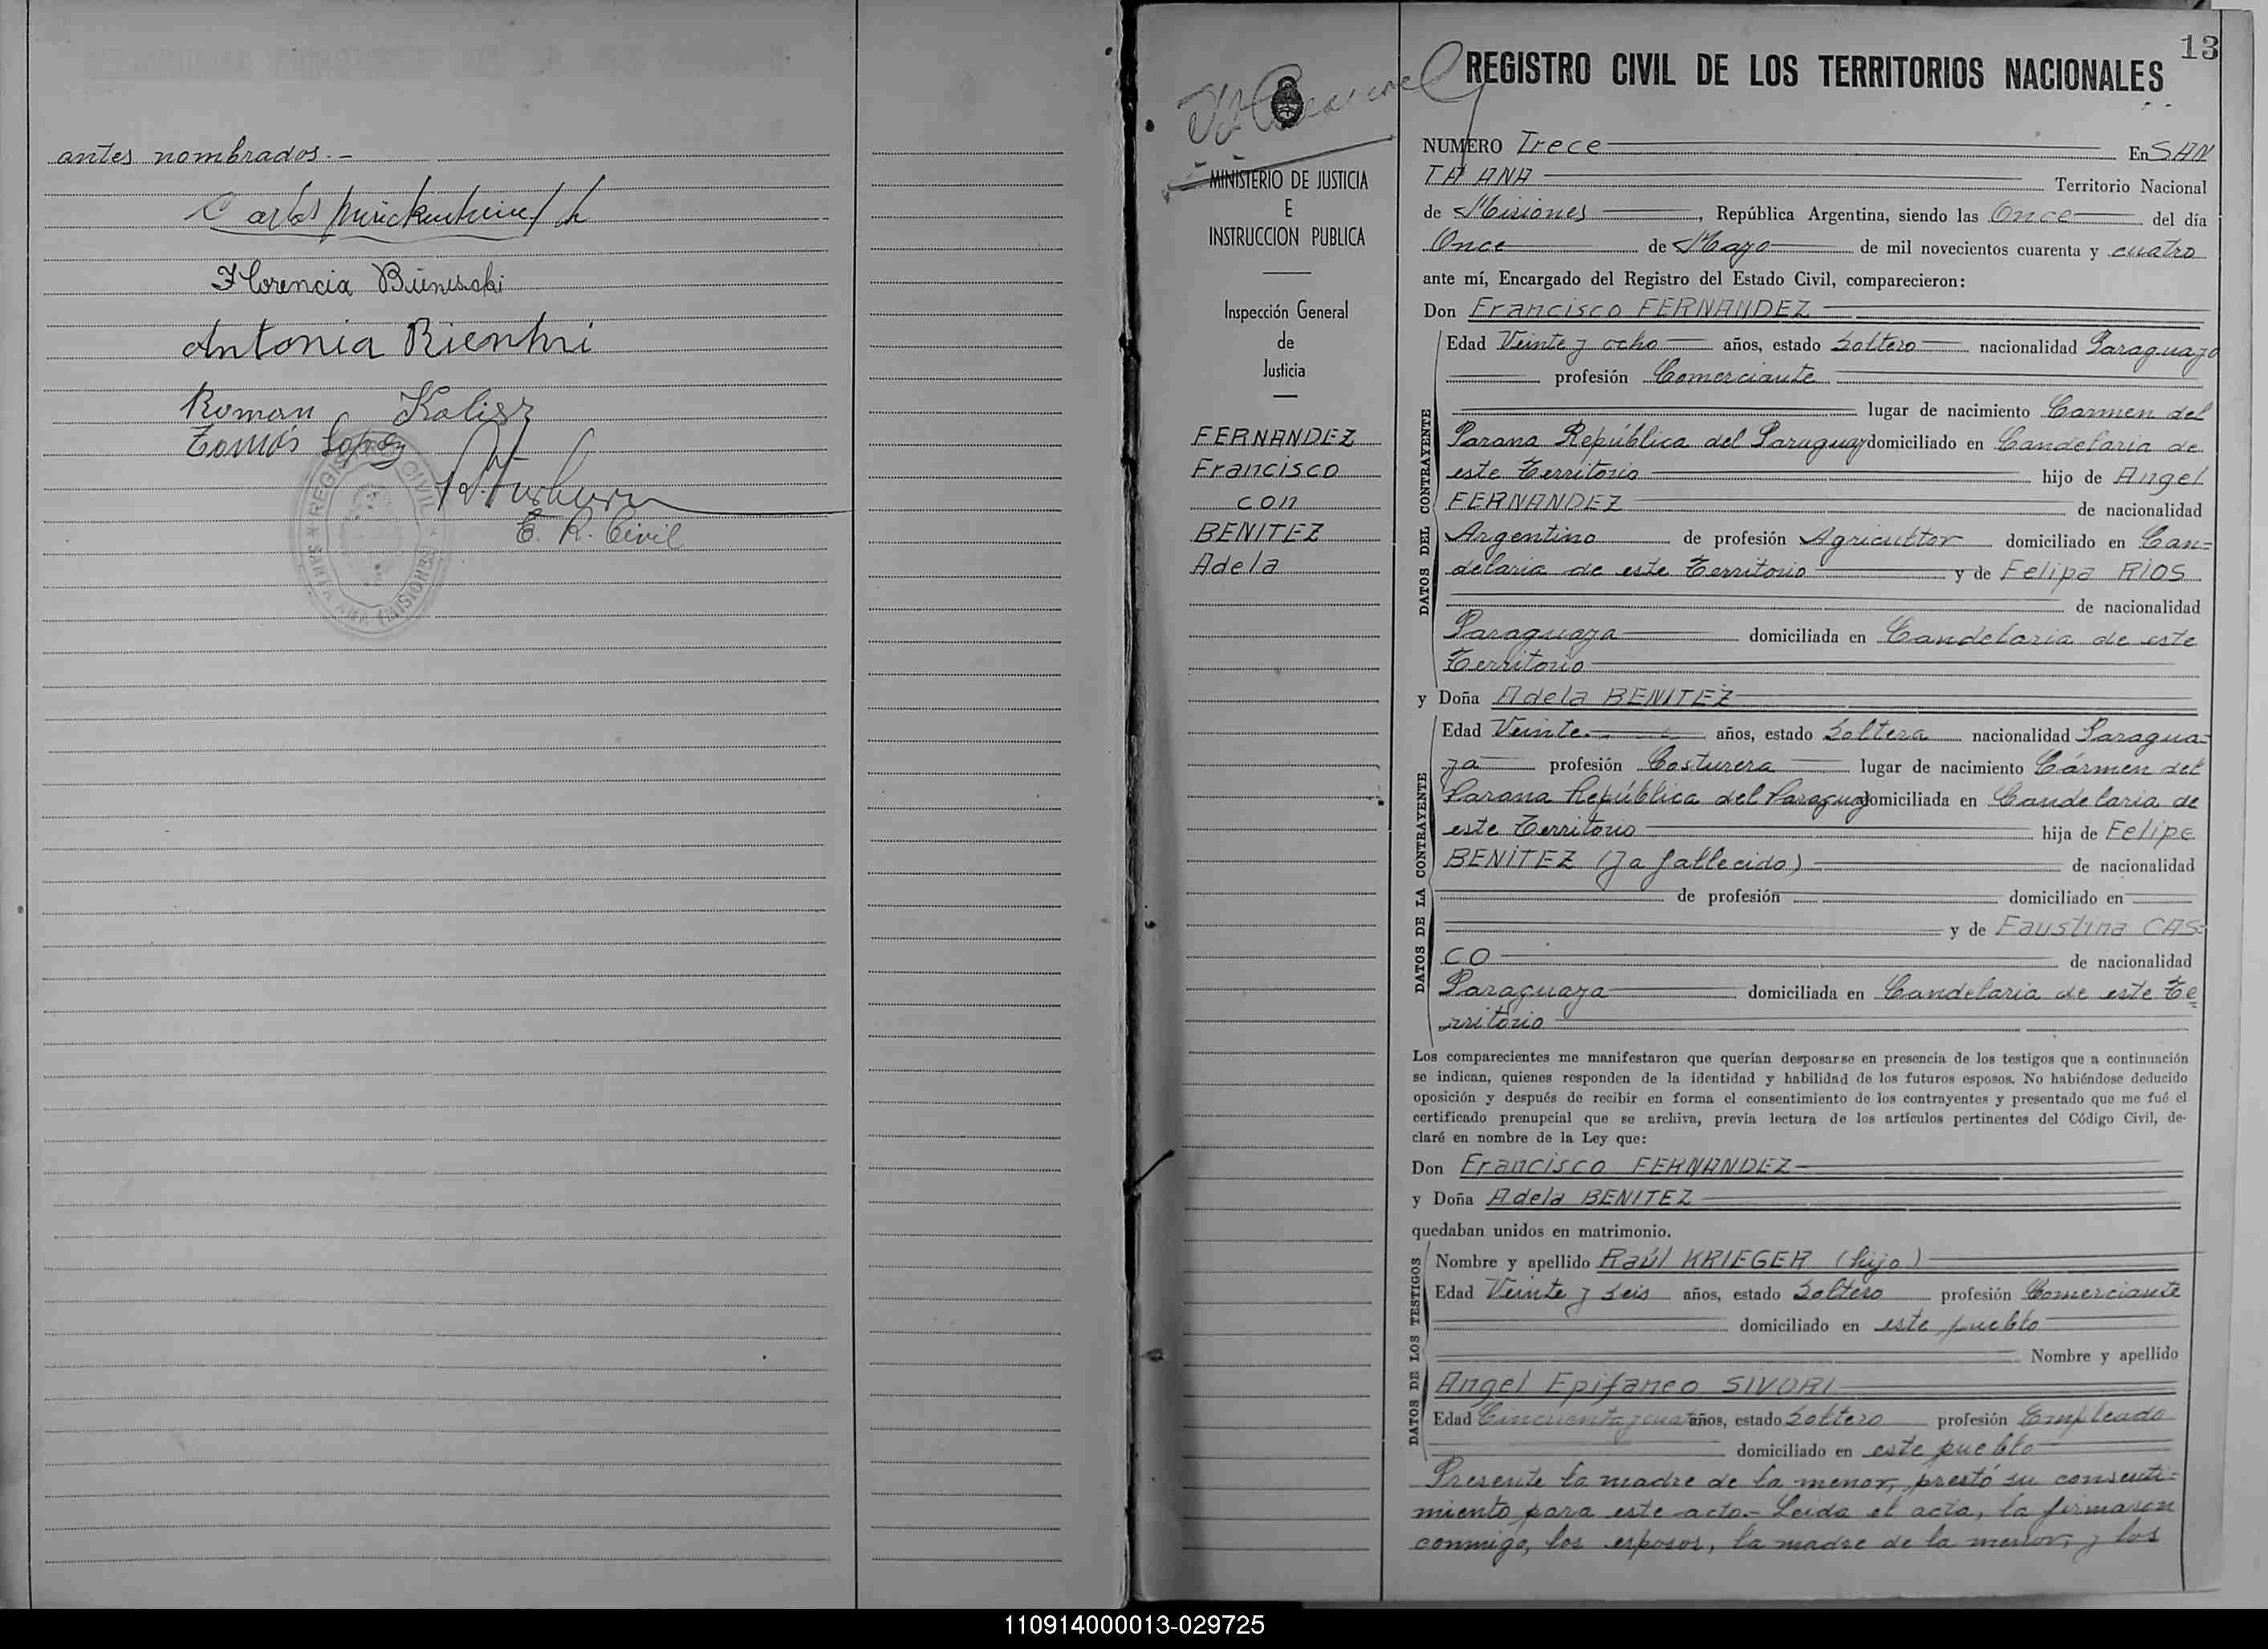 antes nombrados.-
Carlos
Florencia
Antonia
Roman Kalisz
Tomás Lopez
E. R. Civil
REGISTRO CIVIL
13
REGISTRO CIVIL DE LOS TERRITORIOS NACIONALES
MINISTERIO DE JUSTICIA
E
INSTRUCCION PUBLICA
Inspección General
de
Justicia
FERNANDEZ
Francisco
con
BENITEZ
Adela
NUMERO Trece En SAN
TA ANA Territorio Nacional
de Misiones, República Argentina, siendo las Once del día
Once de Mayo de mil novecientos cuarenta y cuatro
ante mí, Encargado del Registro del Estado Civil, comparecieron:
Don Francisco FERNANDEZ
DATOS DEL CONTRAYENTE
Edad Veinte y ocho años, estado Soltero nacionalidad Paraguayo
profesión Comerciante
lugar de nacimiento Carmen del
Parana República del Paraguay domiciliado en Candelaria de
este Territorio hijo de Angel
FERNANDEZ de nacionalidad
Argentino de profesión Agricultor domiciliado en Can=
delaria de este Territorio y de Felipa RIOS
de nacionalidad
Paraguaya domiciliada en Candelaria de este
Territorio
y Doña Adela BENITEZ
DATOS DE LA CONTRAYENTE
Edad Veinte años, estado Soltera nacionalidad Paragua=
ya profesión Costurera lugar de nacimiento Cármen del
Parana República del Paraguay domiciliada en Candelaria de
este Territorio hija de Felipe
BENITEZ (ya fallecido) de nacionalidad
de profesión domiciliado en
y de Faustina CAS=
CO de nacionalidad
Paraguaya domiciliada en Candelaria de este Te=
rritorio
Los comparecientes me manifestaron que querían desposarse en presencia de los testigos que a continuación
se indican, quienes responden de la identidad y habilidad de los futuros esposos. No habiéndose deducido
oposición y después de recibir en forma el consentimiento de los contrayentes y presentado que me fué el
certificado prenupcial que se archiva, previa lectura de los artículos pertinentes del Código Civil, de-
claré en nombre de la Ley que:
Don Francisco FERNANDEZ
y Doña Adela BENITEZ
quedaban unidos en matrimonio.
DATOS DE LOS TESTIGOS
Nombre y apellido Raúl KRIEGER (hijo)
Edad Veinte y seis años, estado Soltero profesión Comerciante
domiciliado en este pueblo
Nombre y apellido
Angel Epifaneo SIVORI
Edad Cincuenta y cuatro años, estado Soltero profesión Empleado
domiciliado en este pueblo
Presente la madre de la menor, prestó su consenti=
miento para este acto.- Leida el acta, la firmaron
conmigo, los esposos, la madre de la menor, y los
110914000013-029725